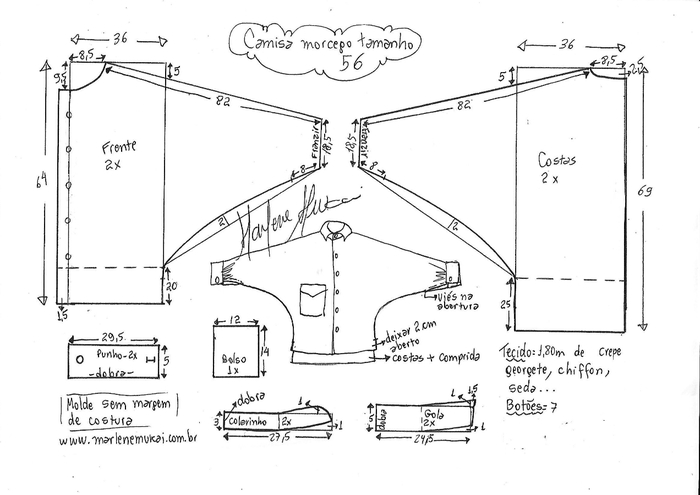 Camisa morcego tamanho
56
36
8,5
9,5
5
82
64
Frente
2x
Franzir
18,5
8
2
20
1,5
36
8,5
2,5
5
82
69
Costas
2x
Franzir
18,5
8
2
25
Marlene Mukai
Viés na
abertura
deixar 2 cm
aberto
costas + comprida
29,5
Punho-2x
-dobra-
5
12
Bolso
1x
14
Tecido: 1,80m de crepe
georgete, chiffon,
seda...
Botões = 7
Molde sem margem
de costura
www.marlenemukai.com.br
dobra
1
3
Colarinho
2x
1
27,5
1
1,5
5
dobra
Gola
2x
1
24,5